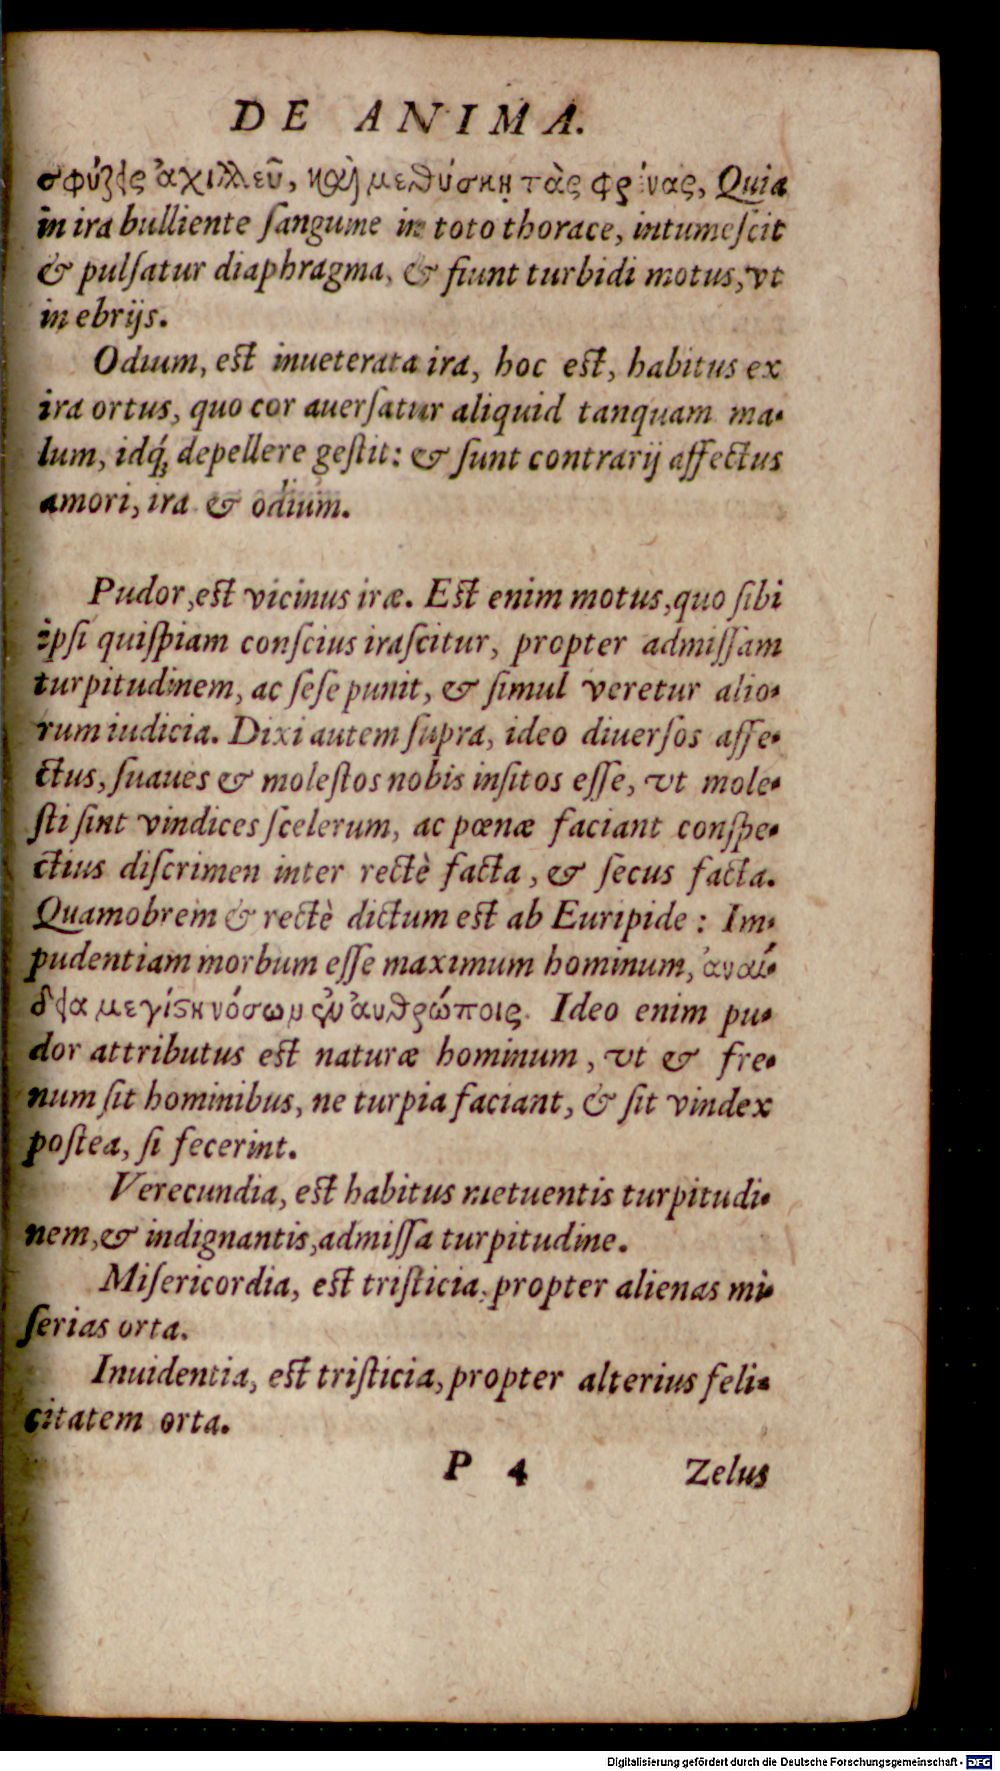 DE ANIMA.
σφύζεις ἀχιλλεῦ, καὶ μεθύσκῃ τὰς φρένας, Quia
in ira bulliente ſanguine in toto thorace, intumeſcit
& pulſatur diaphragma, & fiunt turbidi motus, vt
in ebrijs.
Odium, eſt inueterata ira, hoc eſt, habitus ex
ira ortus, quo cor auerſatur aliquid tanquam ma-
lum, idq́; depellere geſtit: & ſunt contrarij affectus
amori, ira & odium.
Pudor, eſt vicinus iræ. Eſt enim motus, quo ſibi
ipſi quiſpiam conſcius iraſcitur, propter admiſſam
turpitudinem, ac ſeſe punit, & ſimul veretur alio-
rum iudicia. Dixi autem ſupra, ideo diuerſos affe-
ctus, ſuaues & moleſtos nobis inſitos eſſe, vt mole-
ſti ſint vindices ſcelerum, ac pœnæ faciant conſpe-
ctius diſcrimen inter rectè facta, & ſecus facta.
Quamobrem & rectè dictum eſt ab Euripide: Im-
pudentiam morbum eſſe maximum hominum, ἀναί-
δεια μεγίστη νόσων ἐν ἀνθρώποις. Ideo enim pu-
dor attributus eſt naturæ hominum, vt & fre-
num ſit hominibus, ne turpia faciant, & ſit vindex
poſtea, ſi fecerint.
Verecundia, eſt habitus metuentis turpitudi-
nem, & indignantis, admiſſa turpitudine.
Miſericordia, eſt triſticia, propter alienas mi-
ſerias orta.
Inuidentia, eſt triſticia, propter alterius feli-
citatem orta.
P 4 Zelus
Digitalisierung gefördert durch die Deutsche Forschungsgemeinschaft - DFG